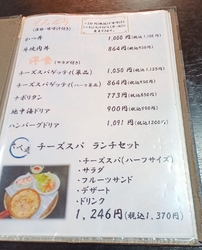 (漬物・味噌汁付き)
カツ丼 1,000円(税込1,100円)
牛焼肉丼 864円(税込950円)
洋食 (サラダ付き)
チーズスパゲッティ(単品) 1,050円(税込1,155円)
チーズスパゲッティ(ハーフ単品) 864円(税込950円)
ナポリタン 773円(税込850円)
地中海ドリア 900円(税込990円)
ハンバーグドリア 1,091円(税込1200円)
チーズスパ ランチセット
・チーズスパ(ハーフサイズ)
・サラダ
・フルーツサンド
・デザート
・ドリンク
1,246円(税込1,370円)